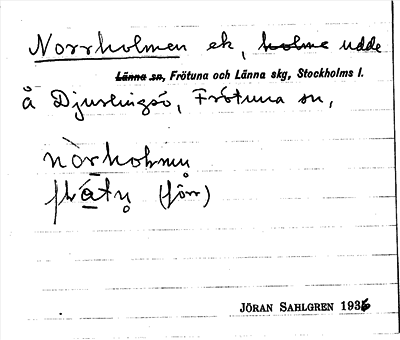 Norrholmen ek, ~~holme~~ udde
~~Länna sn~~, Frötuna och Länna skg, Stockholms l.
å Djurlingsö, Frötuna sn,
nòrholmn̥
(förr)
JÖRAN SAHLGREN 1936